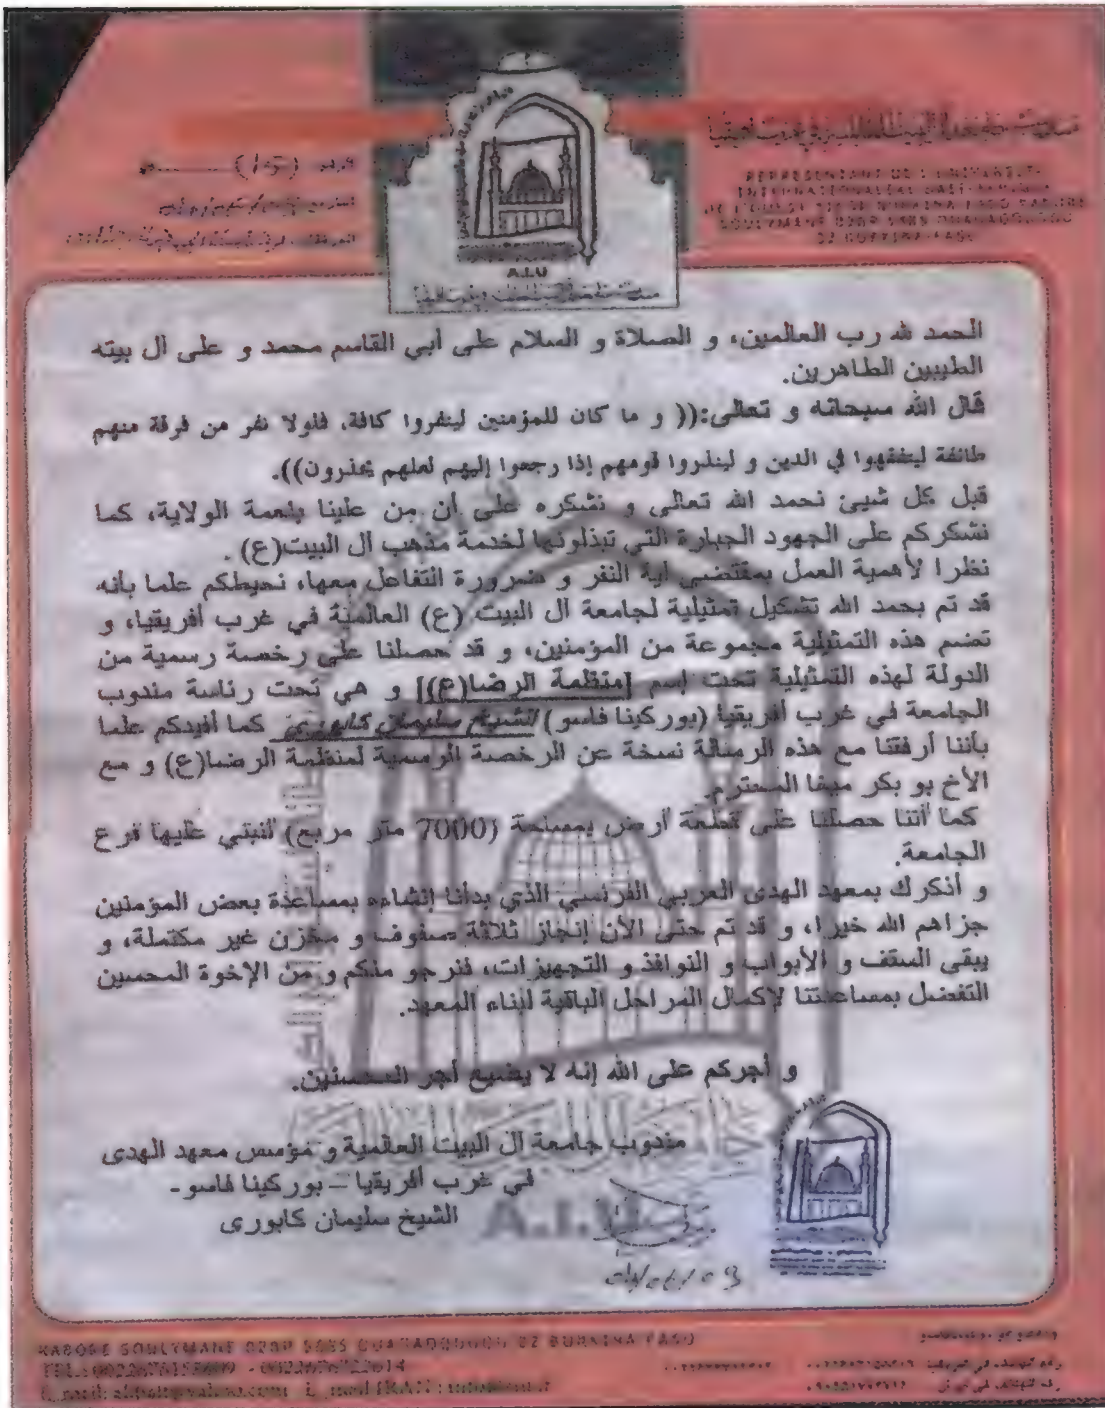 REPRESENTANT DE L'UNIVERSITE
A.I.U
الحمد لله رب العالمين، و الصلاة و السلام على أبي القاسم محمد و على آل بيته
الطيبين الطاهرين.
قال الله سبحانه و تعالى:(( و ما كان للمؤمنين لينفروا كافة، فلولا نفر من فرقة منهم
طائفة ليتفقهوا في الدين و لينذروا قومهم إذا رجعوا إليهم لعلهم يحذرون)).
قبل كل شيئ نحمد الله تعالى و نشكره على أن من علينا بنعمة الولاية، كما
نشكركم على الجهود الجبارة التي تبذلونها لخدمة مذهب آل البيت(ع) .
نظرا لأهمية العمل بمقتضى آية النفر و ضرورة التفاعل معها، نحيطكم علما بأنه
قد تم بحمد الله تشكيل تمثيلية لجامعة آل البيت (ع) العالمية في غرب أفريقيا، و
تضم هذه التمثيلية مجموعة من المؤمنين، و قد حصلنا على رخصة رسمية من
الدولة لهذه التمثيلية تحت إسم [منظمة الرضا(ع)] و هي تحت رئاسة مندوب
الجامعة في غرب أفريقيا (بوركينا فاسو) الشيخ سليمان كابوري كما أفيدكم علما
بأننا أرفقنا مع هذه الرسالة نسخة عن الرخصة الرسمية لمنظمة الرضا(ع) و مع
الأخ بو بكر ميغا المحترم.
كما أننا حصلنا على قطعة أرض بمساحة (7000 متر مربع) لنبني عليها فرع
الجامعة.
و أذكرك بمعهد الهدى العربي الفرنسي الذي بدأنا إنشاءه بمساعدة بعض المؤمنين
جزاهم الله خيرا، و قد تم حتى الآن إنجاز ثلاثة صفوف و مخزن غير مكتملة، و
يبقى السقف و الأبواب و النوافذ و التجهيزات، فنرجو منكم و من الإخوة المحسنين
التفضل بمساعدتنا لإكمال المراحل الباقية لبناء المعهد.
و أجركم على الله إنه لا يضيع أجر المحسنين.
مندوب جامعة آل البيت العالمية و مؤسس معهد الهدى
في غرب أفريقيا – بوركينا فاسو-
الشيخ سليمان كابورى
A.I.U
KABORE SOULYMANE 02BP 5085 OUAGADOUGOU 02 BURKINA FASO